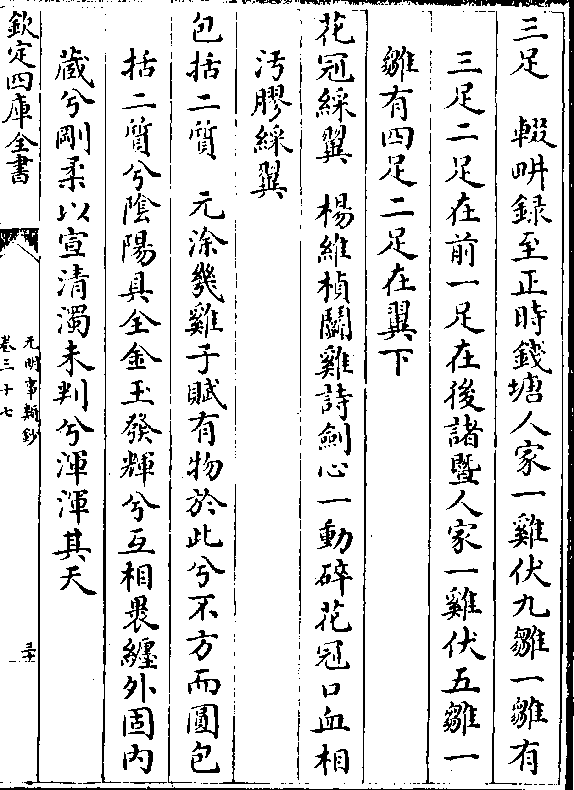 三足　輟畊録至正時錢塘人家一雞伏九雛一雛有
三足二足在前一足在後諸暨人家一雞伏五雛一
雛有四足二足在翼下
花冠綵翼　楊維楨鬬雞詩劍心一動碎花冠口血相
汚膠綵翼
包括二質　元涂幾雞子賦有物於此兮不方而圓包
括二質兮陰陽具全金玉發輝兮互相褁纏外固内
蔵兮剛柔以宣清濁未判兮渾渾其天
欽定四庫全書
元明事類鈔
卷三十七
三十